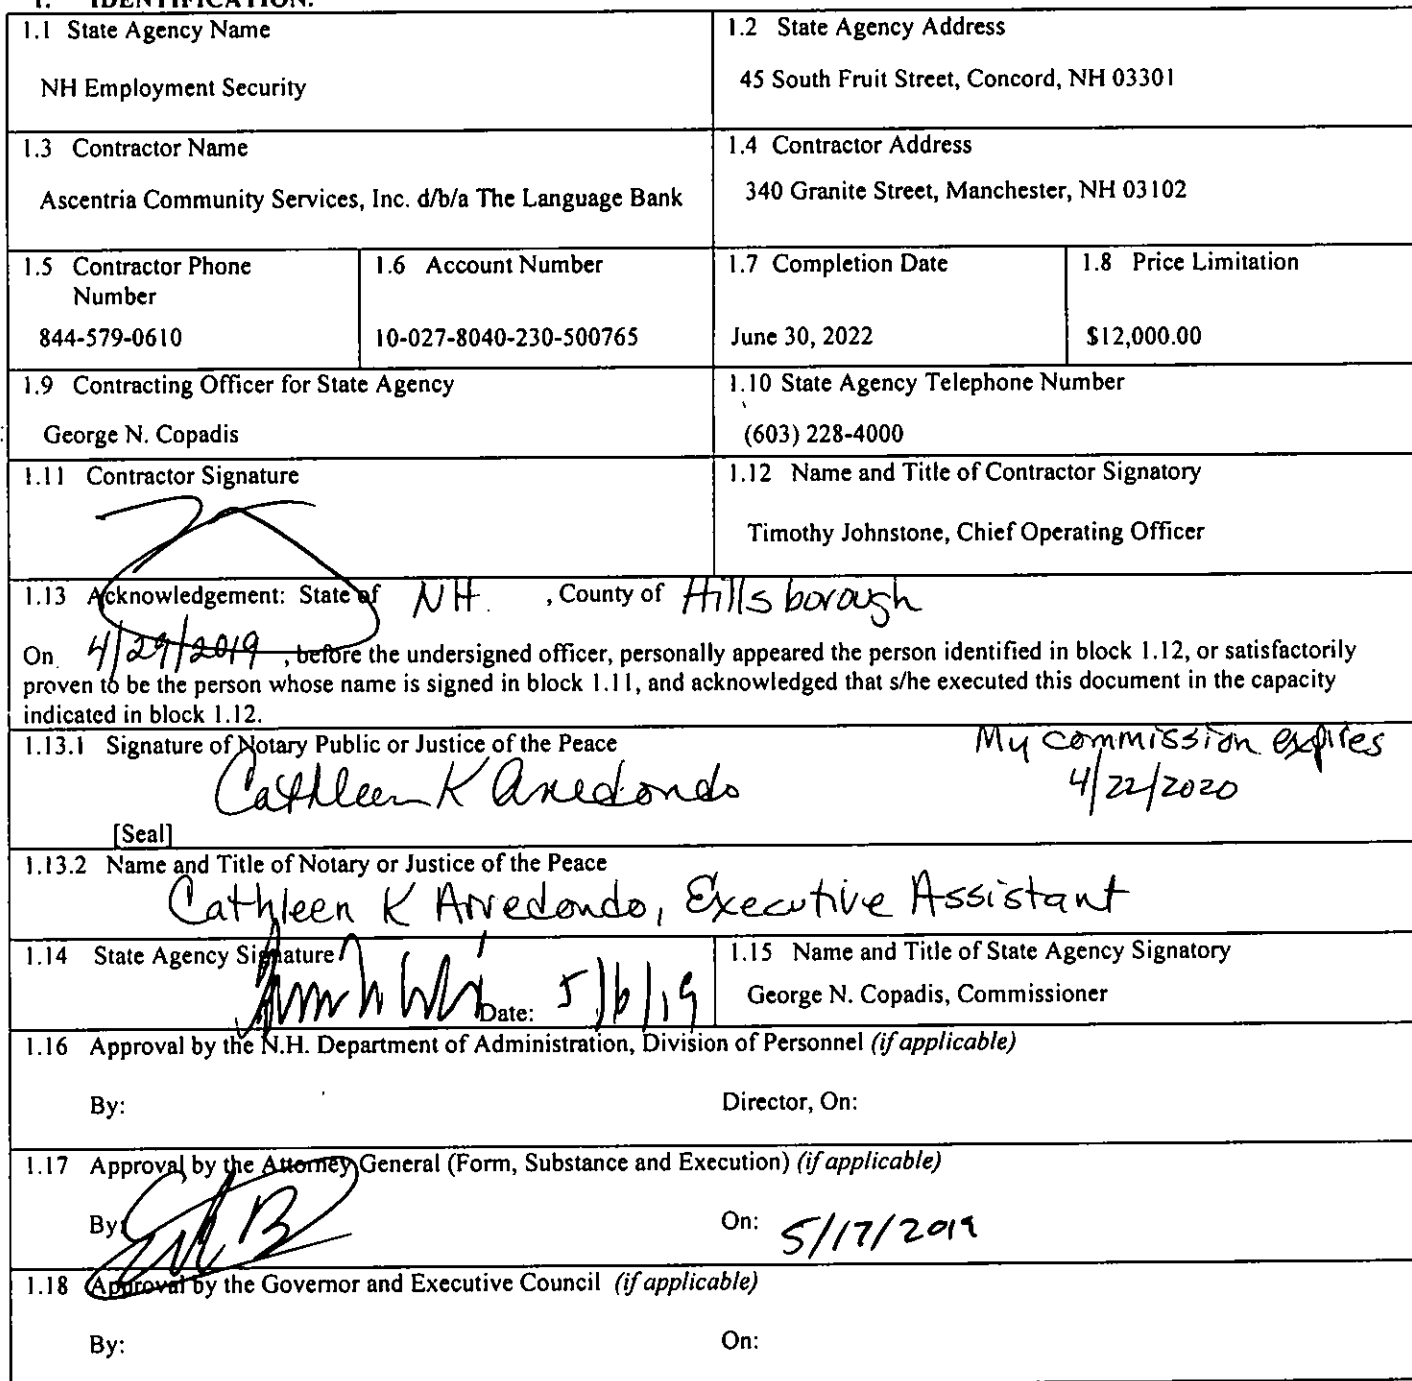 1. IDENTIFICATION.
1.1 State Agency Name
NH Employment Security
1.2 State Agency Address
45 South Fruit Street, Concord, NH 03301
1.3 Contractor Name
Ascentria Community Services, Inc. d/b/a The Language Bank
1.4 Contractor Address
340 Granite Street, Manchester, NH 03102
1.5 Contractor Phone
Number
844-579-0610
1.6 Account Number
10-027-8040-230-500765
1.7 Completion Date
June 30, 2022
1.8 Price Limitation
$12,000.00
1.9 Contracting Officer for State Agency
George N. Copadis
1.10 State Agency Telephone Number
(603) 228-4000
1.11 Contractor Signature
1.12 Name and Title of Contractor Signatory
Timothy Johnstone, Chief Operating Officer
1.13 Acknowledgement: State of NH. , County of Hillsborough
On 4/29/2019 , before the undersigned officer, personally appeared the person identified in block 1.12, or satisfactorily
proven to be the person whose name is signed in block 1.11, and acknowledged that s/he executed this document in the capacity
indicated in block 1.12.
1.13.1 Signature of Notary Public or Justice of the Peace
My commission expires
4/22/2020
Cathleen K Arredondo
[Seal]
1.13.2 Name and Title of Notary or Justice of the Peace
Cathleen K Arredondo, Executive Assistant
1.14 State Agency Signature
Date: 5/6/19
1.15 Name and Title of State Agency Signatory
George N. Copadis, Commissioner
1.16 Approval by the N.H. Department of Administration, Division of Personnel (if applicable)
By:
Director, On:
1.17 Approval by the Attorney General (Form, Substance and Execution) (if applicable)
By:
On: 5/17/2019
1.18 Approval by the Governor and Executive Council (if applicable)
By:
On: